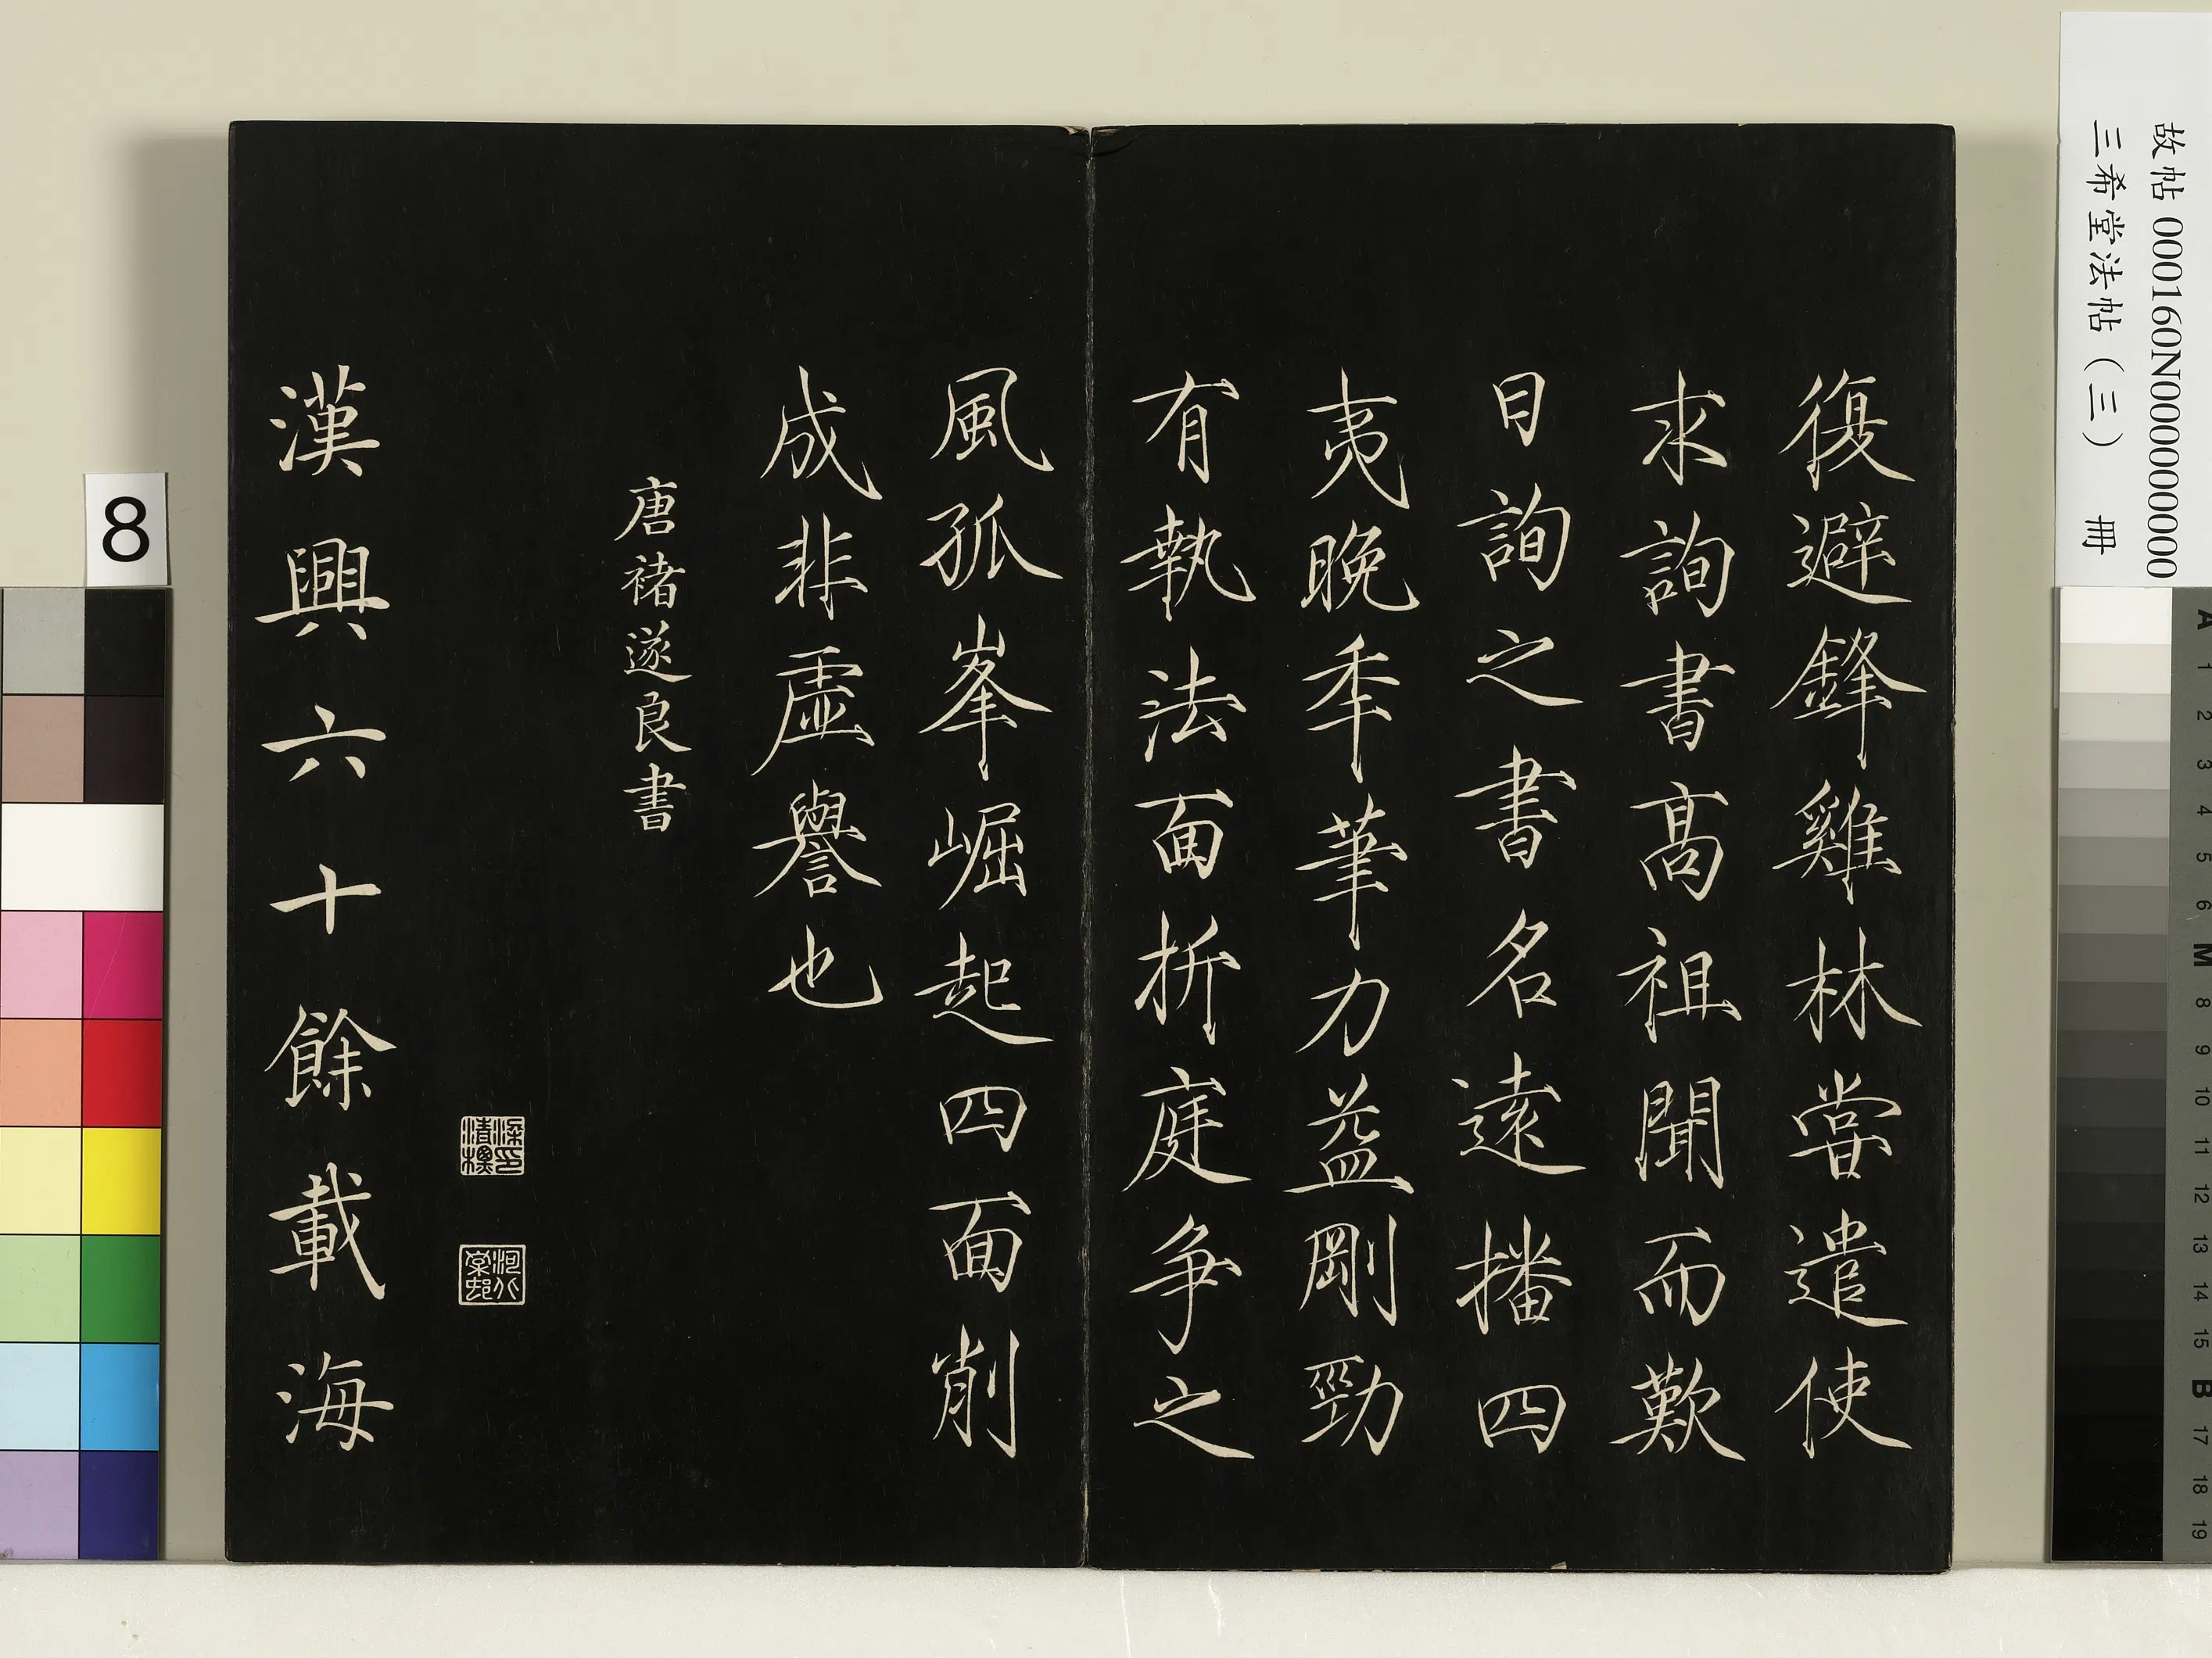 故帖000160N000000000
三希堂法帖（三） 冊
復避鋒雞林嘗遣使
求詢書高祖聞而歎
曰詢之書名遠播四
夷晚季筆力益剛勁
有執法面折庭爭之
風孤峯崛起四面削
成非虛譽也
唐褚遂良書
漢興六十餘載海
8
A 1 2 3 4 5 6 M 8 9 10 11 12 13 14 15 B 17 18 19